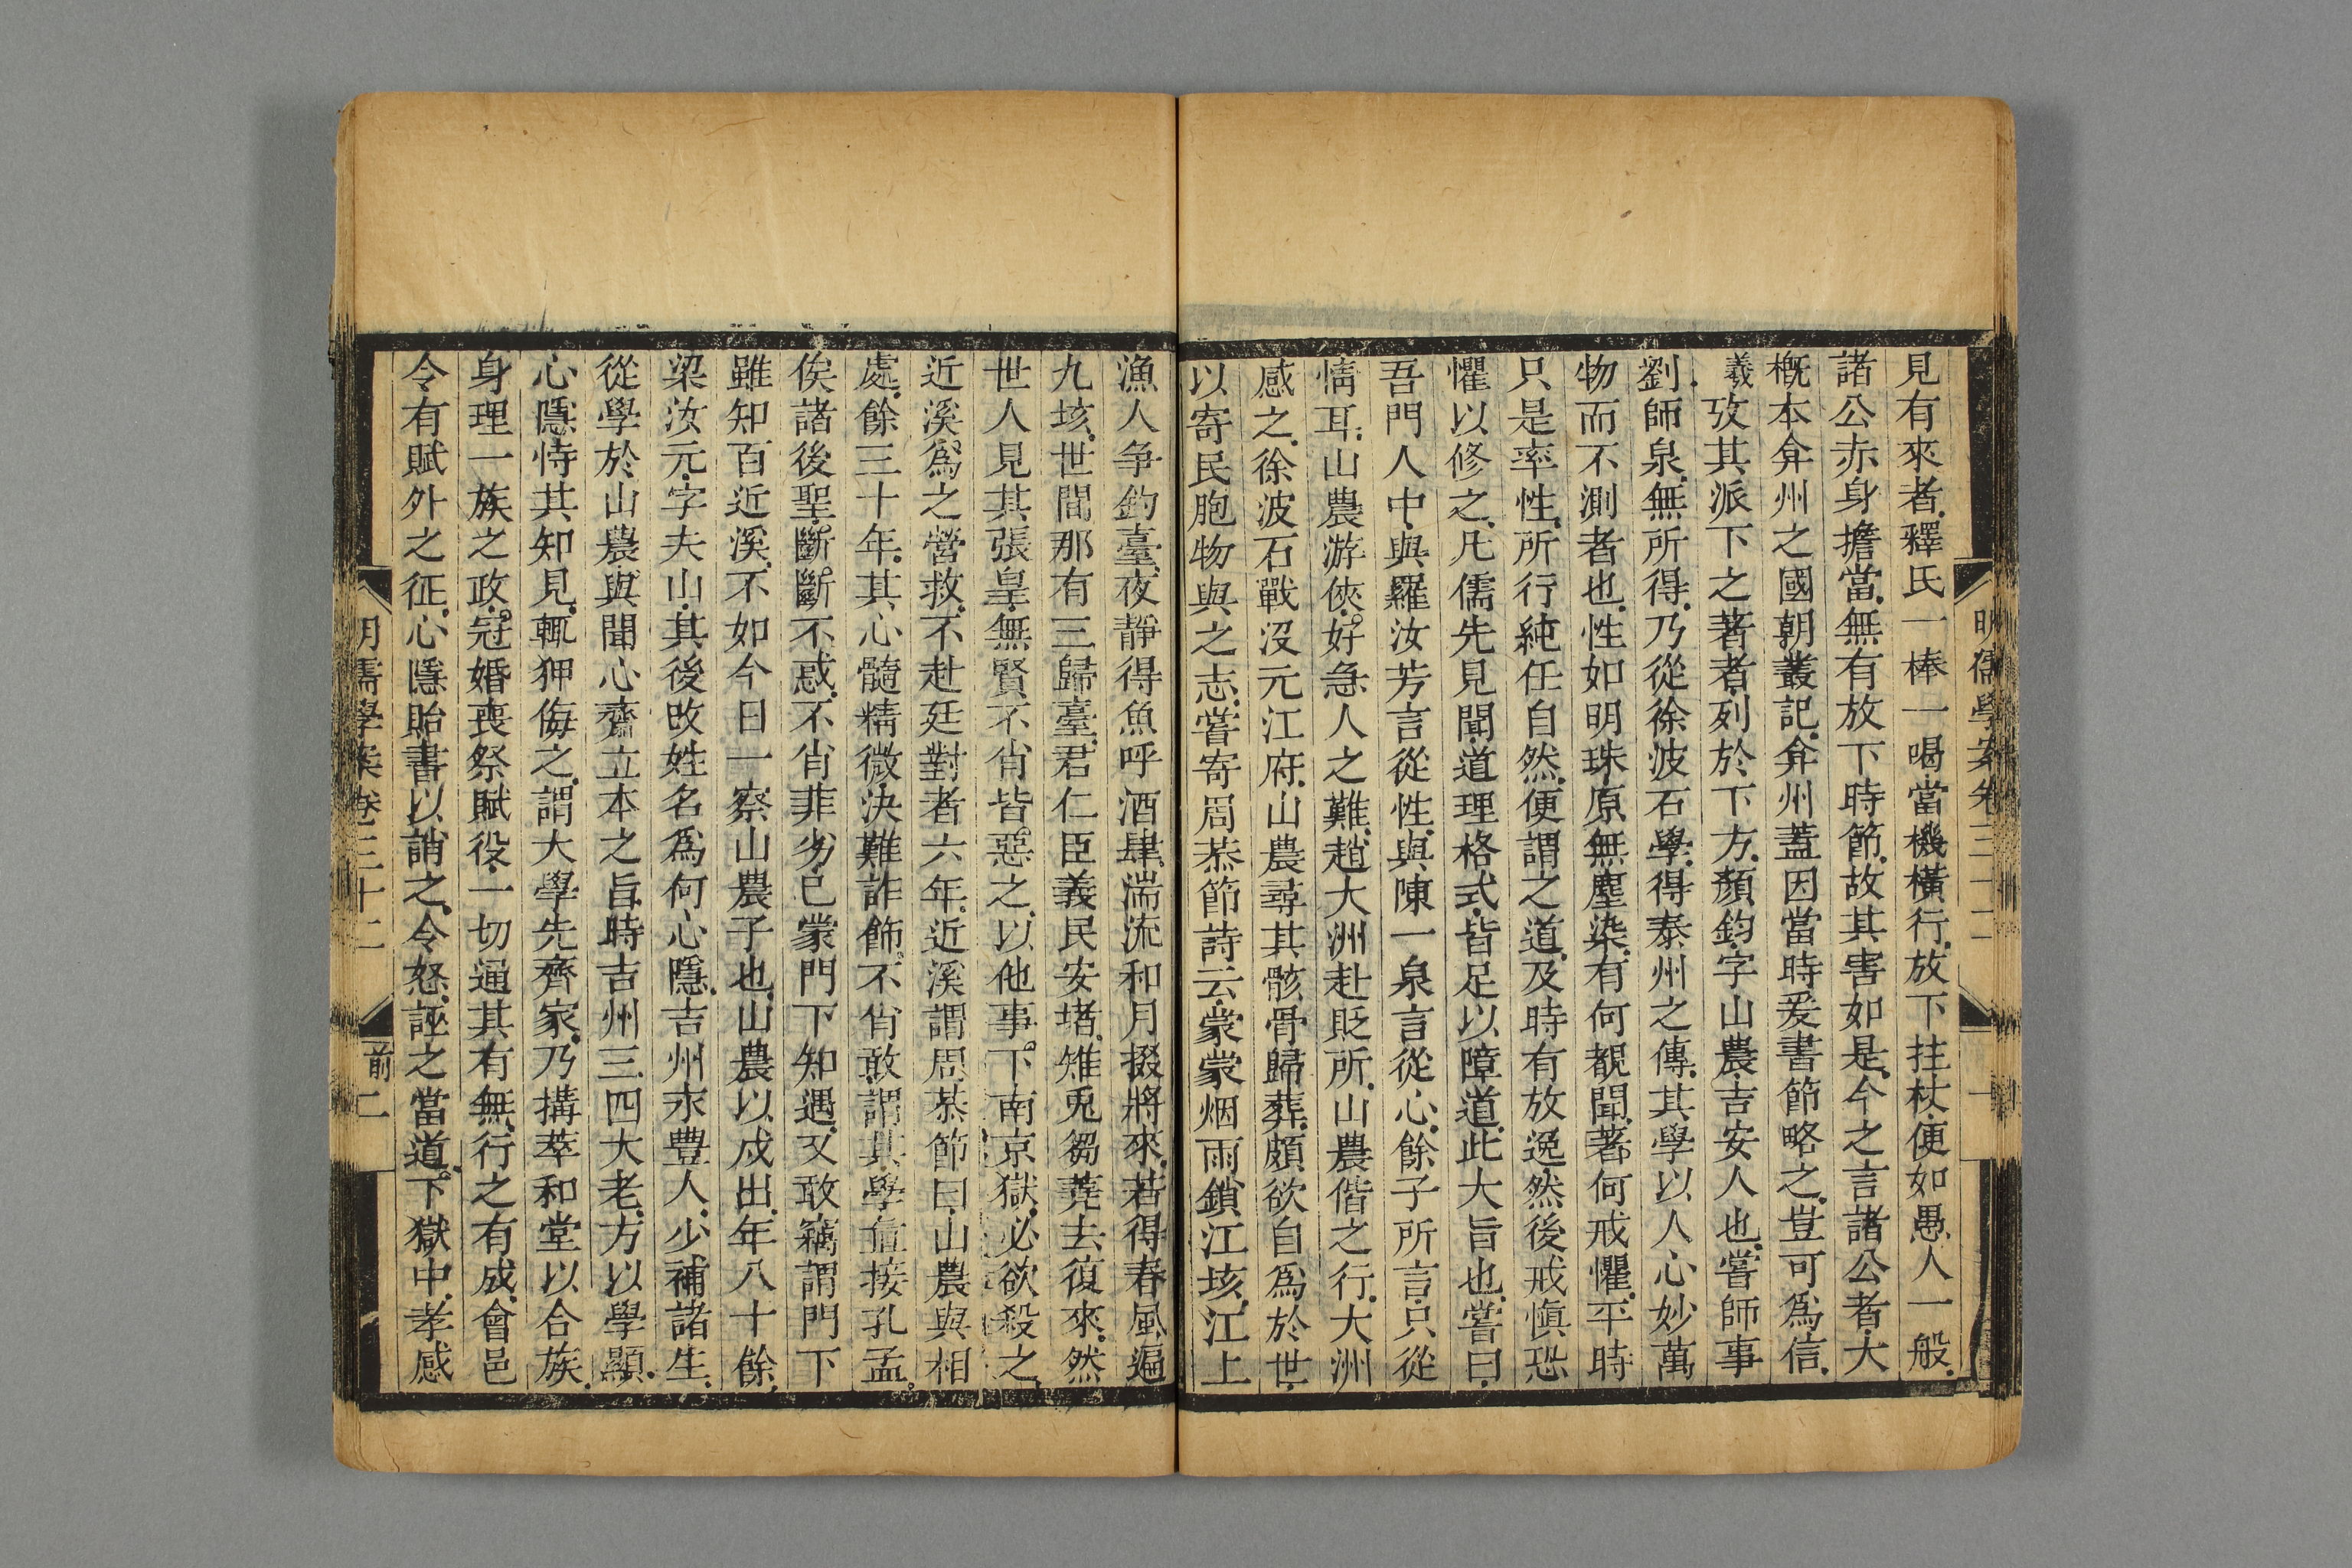 明儒學案卷三十二
一
見有來者釋氏一棒一喝當機橫行放下拄杖便如愚人一般
諸公赤身擔當無有放下時節故其害如是今之言諸公者大
槪本弇州之國朝叢記弇州蓋因當時爰書節略之豈可爲信
羲攷其派下之著者列於下方顏鈞字山農吉安人也嘗師事
劉師泉無所得乃從徐波石學得泰州之傳其學以人心妙萬
物而不測者也性如明珠原無塵染有何覩聞著何戒懼平時
只是率性所行純任自然便謂之道及時有放逸然後戒愼恐
懼以修之凡儒先見聞道理格式皆足以障道此大旨也嘗曰
吾門人中與羅汝芳言從性與陳一泉言從心餘子所言只從
情耳山農游俠好急人之難趙大洲赴貶所山農偕之行大洲
感之徐波石戰沒元江府山農尋其骸骨歸葬頗欲自爲於世
以寄民胞物與之志嘗寄周恭節詩云蒙蒙烟雨鎖江垓江上
漁人争釣臺夜靜得魚呼酒肆湍流和月掇將來若得春風遍
九垓世間那有三歸臺君仁臣義民安堵雉兎芻蕘去復來然
世人見其張皇無賢不肖皆惡之以他事下南京獄必欲殺之
近溪爲之營救不赴廷對者六年近溪謂周恭節曰山農與相
處餘三十年其心髓精微決難詐飾不肖敢謂其學直接孔孟
俟諸後聖斷斷不惑不肖菲劣已蒙門下知遇又敢竊謂門下
雖知百近溪不如今日一察山農子也山農以戍出年八十餘
梁汝元字夫山其後改姓名爲何心隱吉州永豐人少補諸生
從學於山農與聞心齋立本之旨時吉州三四大老方以學顯
心隱恃其知見輒狎侮之謂大學先齊家乃搆萃和堂以合族
身理一族之政冠婚喪祭賦役一切通其有無行之有成會邑
令有賦外之征心隱貽書以誚之令怒誣之當道下獄中孝感
明儒學案卷三十二
前二